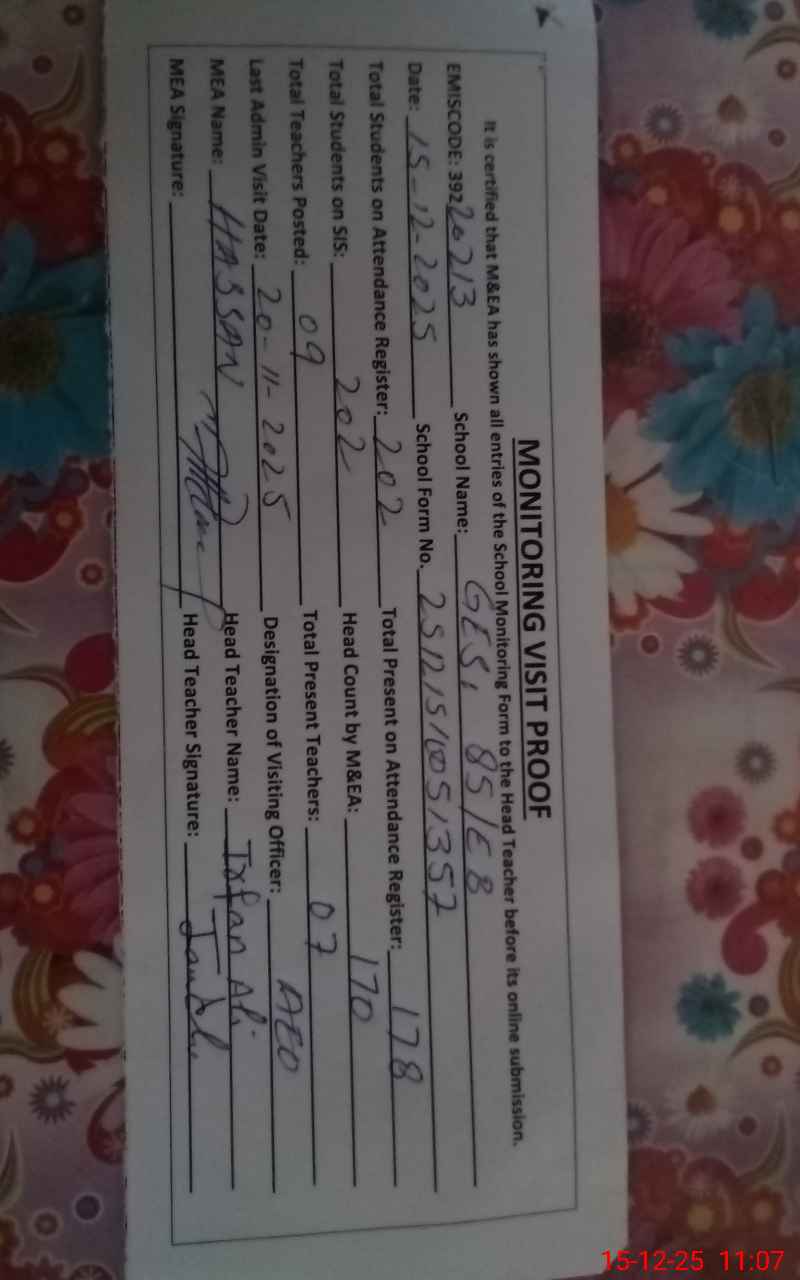 MONITORING VISIT PROOF
It is certified that M&EA has shown all entries of the School Monitoring Form to the Head Teacher before its online submission.
EMISCODE: 39220213 School Name: GES, 85/EB
Date: 15-12-2025 School Form No. 2512151051357
Total Students on Attendance Register: 202 Total Present on Attendance Register: 178
Total Students on SIS: 202 Head Count by M&EA: 170
Total Teachers Posted: 09 Total Present Teachers: 07
Last Admin Visit Date: 20-11-2025 Designation of Visiting Officer: AEO
MEA Name: HASSAN Head Teacher Name: Irfan Ali
MEA Signature: Head Teacher Signature:
15-12-25 11:07